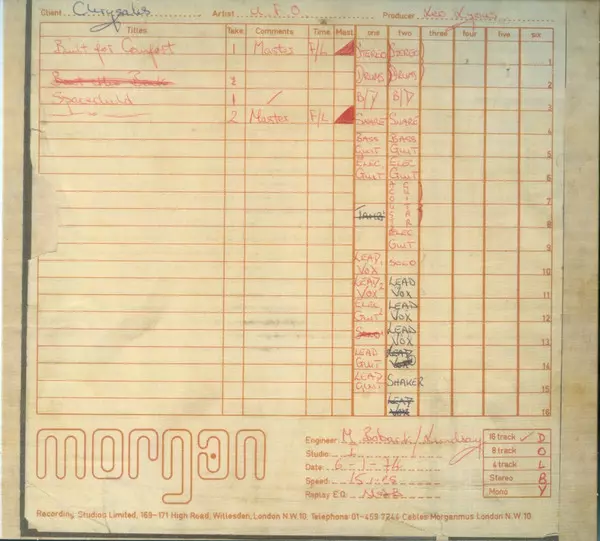 Client Chrysalis Artist U.F.O Producer Leo Lyons
Titles Take Comments Time Mast. one two three four five six
Built for Comfort 1 Master F/L STEREO STEREO 1
2 DRUMS DRUMS 2
Spacechild 1 ✓ B/D B/D 3
2 Master F/L SNARE SNARE 4
BASS GUIT BASS GUIT 5
ELEC GUIT ELEC GUIT 6
ACOUSTIC GUITAR 7
8
ELEC GUIT 9
LEAD 1 VOX SOLO 10
LEAD 2 VOX LEAD VOX 11
ELEC GUIT LEAD VOX 12
SOLO LEAD VOX 13
LEAD GUIT LEAD VOX 14
LEAD GUIT SHAKER 15
LEAD VOX 16
morgan
Engineer: M. 16 track ✓ D
Studio: 1 8 track O
Date: 6-1-74 4 track L
Speed: 15 Stereo B
Replay E.Q. NAB Mono Y
Recording Studios Limited, 169-171 High Road, Willesden, London N.W.10. Telephone 01-459 7244 Cables Morganmus London N.W.10.